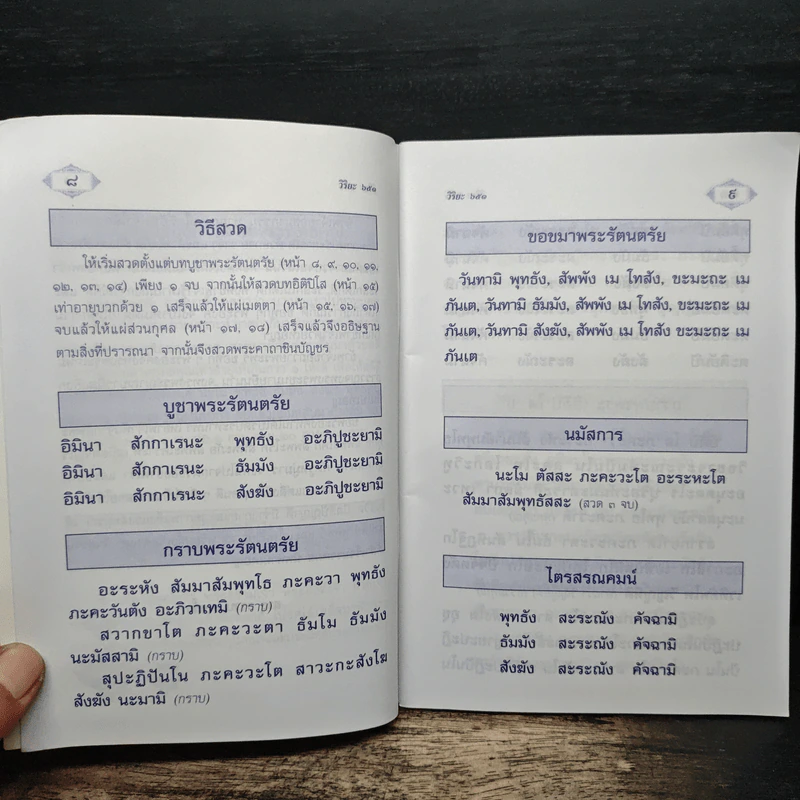 ๘
วิริยะ ๖๕๑
วิธีสวด
ให้เริ่มสวดตั้งแต่บทบูชาพระรัตนตรัย (หน้า ๘, ๙, ๑๐, ๑๑,
๑๒, ๑๓, ๑๔) เพียง ๑ จบ จากนั้นให้สวดบทอิติปิโส (หน้า ๑๕)
เท่าอายุบวกด้วย ๑ เสร็จแล้วให้แผ่เมตตา (หน้า ๑๕, ๑๖, ๑๗)
จบแล้วให้แผ่ส่วนกุศล (หน้า ๑๗, ๑๘) เสร็จแล้วจึงอธิษฐาน
ตามสิ่งที่ปรารถนา จากนั้นจึงสวดพระคาถาชินบัญชร
บูชาพระรัตนตรัย
อิมินา สักกาเรนะ พุทธัง อะภิปูชะยามิ
อิมินา สักกาเรนะ ธัมมัง อะภิปูชะยามิ
อิมินา สักกาเรนะ สังฆัง อะภิปูชะยามิ
กราบพระรัตนตรัย
อะระหัง สัมมาสัมพุทโธ ภะคะวา พุทธัง
ภะคะวันตัง อะภิวาเทมิ (กราบ)
สวากขาโต ภะคะวะตา ธัมโม ธัมมัง
นะมัสสามิ (กราบ)
สุปะฏิปันโน ภะคะวะโต สาวะกะสังโฆ
สังฆัง นะมามิ (กราบ)
วิริยะ ๖๕๑
๙
ขอขมาพระรัตนตรัย
วันทามิ พุทธัง, สัพพัง เม โทสัง, ขะมะถะ เม
ภันเต, วันทามิ ธัมมัง, สัพพัง เม โทสัง, ขะมะถะ เม
ภันเต, วันทามิ สังฆัง, สัพพัง เม โทสัง ขะมะถะ เม
ภันเต
นมัสการ
นะโม ตัสสะ ภะคะวะโต อะระหะโต
สัมมาสัมพุทธัสสะ (สวด ๓ จบ)
ไตรสรณคมน์
พุทธัง สะระณัง คัจฉามิ
ธัมมัง สะระณัง คัจฉามิ
สังฆัง สะระณัง คัจฉามิ